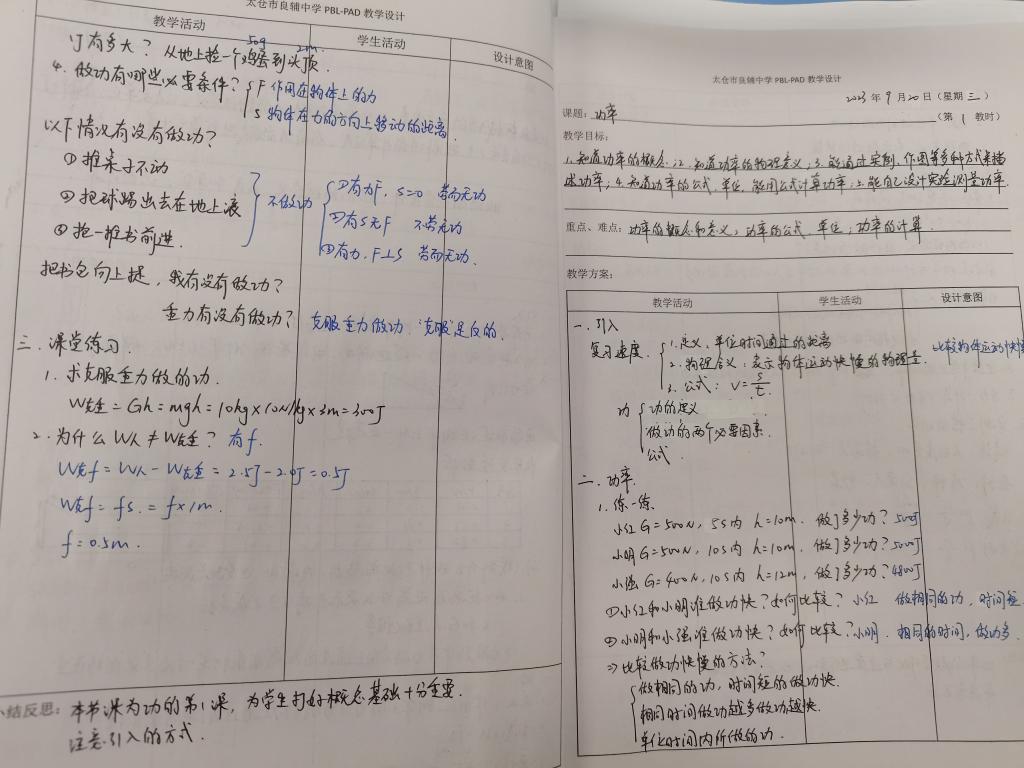 太仓市良辅中学 PBL-PAD 教学设计
教学活动 学生活动 设计意图
1J有多大？从地上捡一个鸡蛋到头顶. 50g 2m
4. 做功有哪些必要条件？ F 作用在物体上的力
S 物体在力的方向上移动的距离
以下情况有没有做功？
① 推桌子不动
② 把球踢出去在地上滚
③ 抱一堆书前进.
不做功
①有力F, S=0 劳而无功
②有S无F 不劳无功
③有力, F⊥S 劳而无功.
把书包向上提，我有没有做功？
重力有没有做功？ 克服重力做功 “克服”是反的.
三. 课堂练习.
1. 求克服重力做的功.
W克重 = Gh = mgh = 10kg × 10N/kg × 3m = 300J
2. 为什么 W人 ≠ W克重？ 有f.
W克f = W人 - W克重 = 2.5J - 2.0J = 0.5J
W克f = fs. = f × 1m.
f = 0.5m.
小结反思：本节课为功的第1课，为学生打好概念基础十分重要.
注意引入的方式.
太仓市良辅中学 PBL-PAD 教学设计
2023 年 9 月 20 日（星期 三）
课题：功率 （第 1 教时）
教学目标：
1. 知道功率的概念；2. 知道功率的物理意义；3. 能通过实例、作图等多种方式来描
述功率；4. 知道功率的公式、单位，能用公式计算功率；5. 能自己设计实验测量功率.
重点、难点：功率的概念和意义；功率的公式、单位；功率的计算.
教学方案：
教学活动 学生活动 设计意图
一. 引入
复习速度. 1. 定义：单位时间通过的距离
2. 物理含义：表示物体运动快慢的物理量. 比较物体运动快慢
3. 公式：v = s/t.
功 功的定义
做功的两个必要因素.
公式.
二. 功率.
1. 练一练.
小红 G=500N, 5s内 h=10m. 做了多少功？5000J
小明 G=500N, 10s内 h=10m. 做了多少功？5000J
小强 G=400N, 10s内 h=12m, 做了多少功？4800J
①小红和小明谁做功快？如何比较？ 小红 做相同的功，时间短
②小明和小强谁做功快？如何比较？ 小明. 相同的时间，做功多
⇒比较做功快慢的方法？
做相同的功，时间短的做功快.
相同时间做功越多做功越快.
单位时间内所做的功.